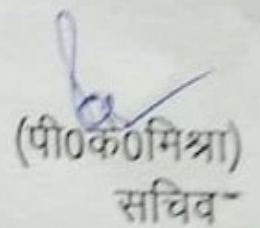 (पी0के0मिश्रा)
सचिव